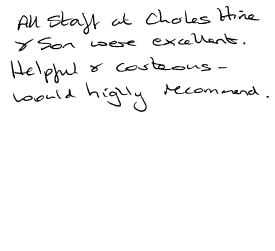 All Staff at Charles Hine
& Son were excellent.
Helpful & corteous -
would highly recommend.